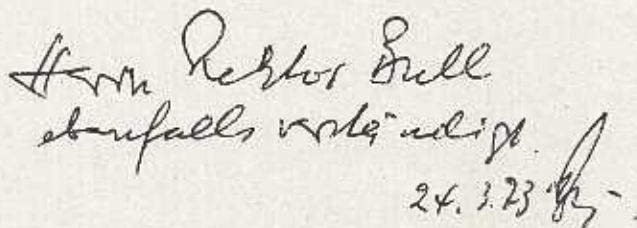 Herrn Rektor Brell
ebenfalls verständigt.
24.3.73